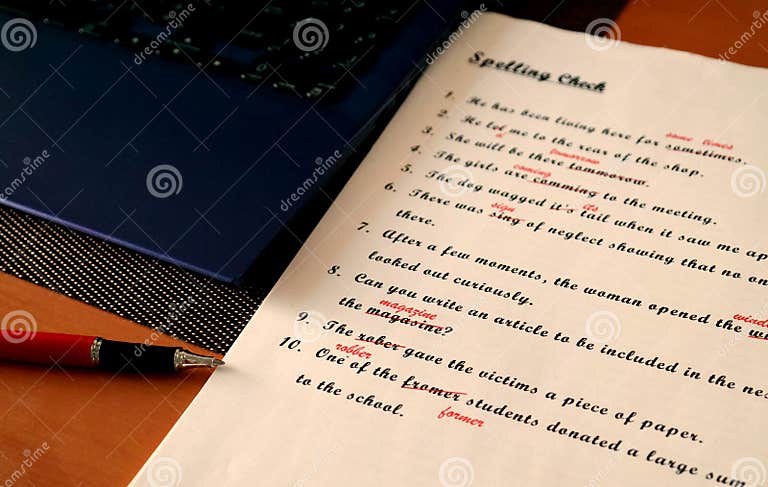 Spelling Check
some times
1. He has been living here for sometimes.
e
2. He lot me to the rear of the shop.
tomorrow
3. She will be there tommorow.
coming
4. The girls are comming to the meeting.
its
5. The dog wagged it's tail when it saw me
sign
6. There was sing of neglect showing that no
there.
7. After a few moments, the woman opened the
looked out curiously.
8. Can you write an article to be included in the
magazine
the magasine?
9. The rober gave the victims a piece of paper.
robber
10. One of the fromer students donated a large sum
former
to the school.
dreamstime